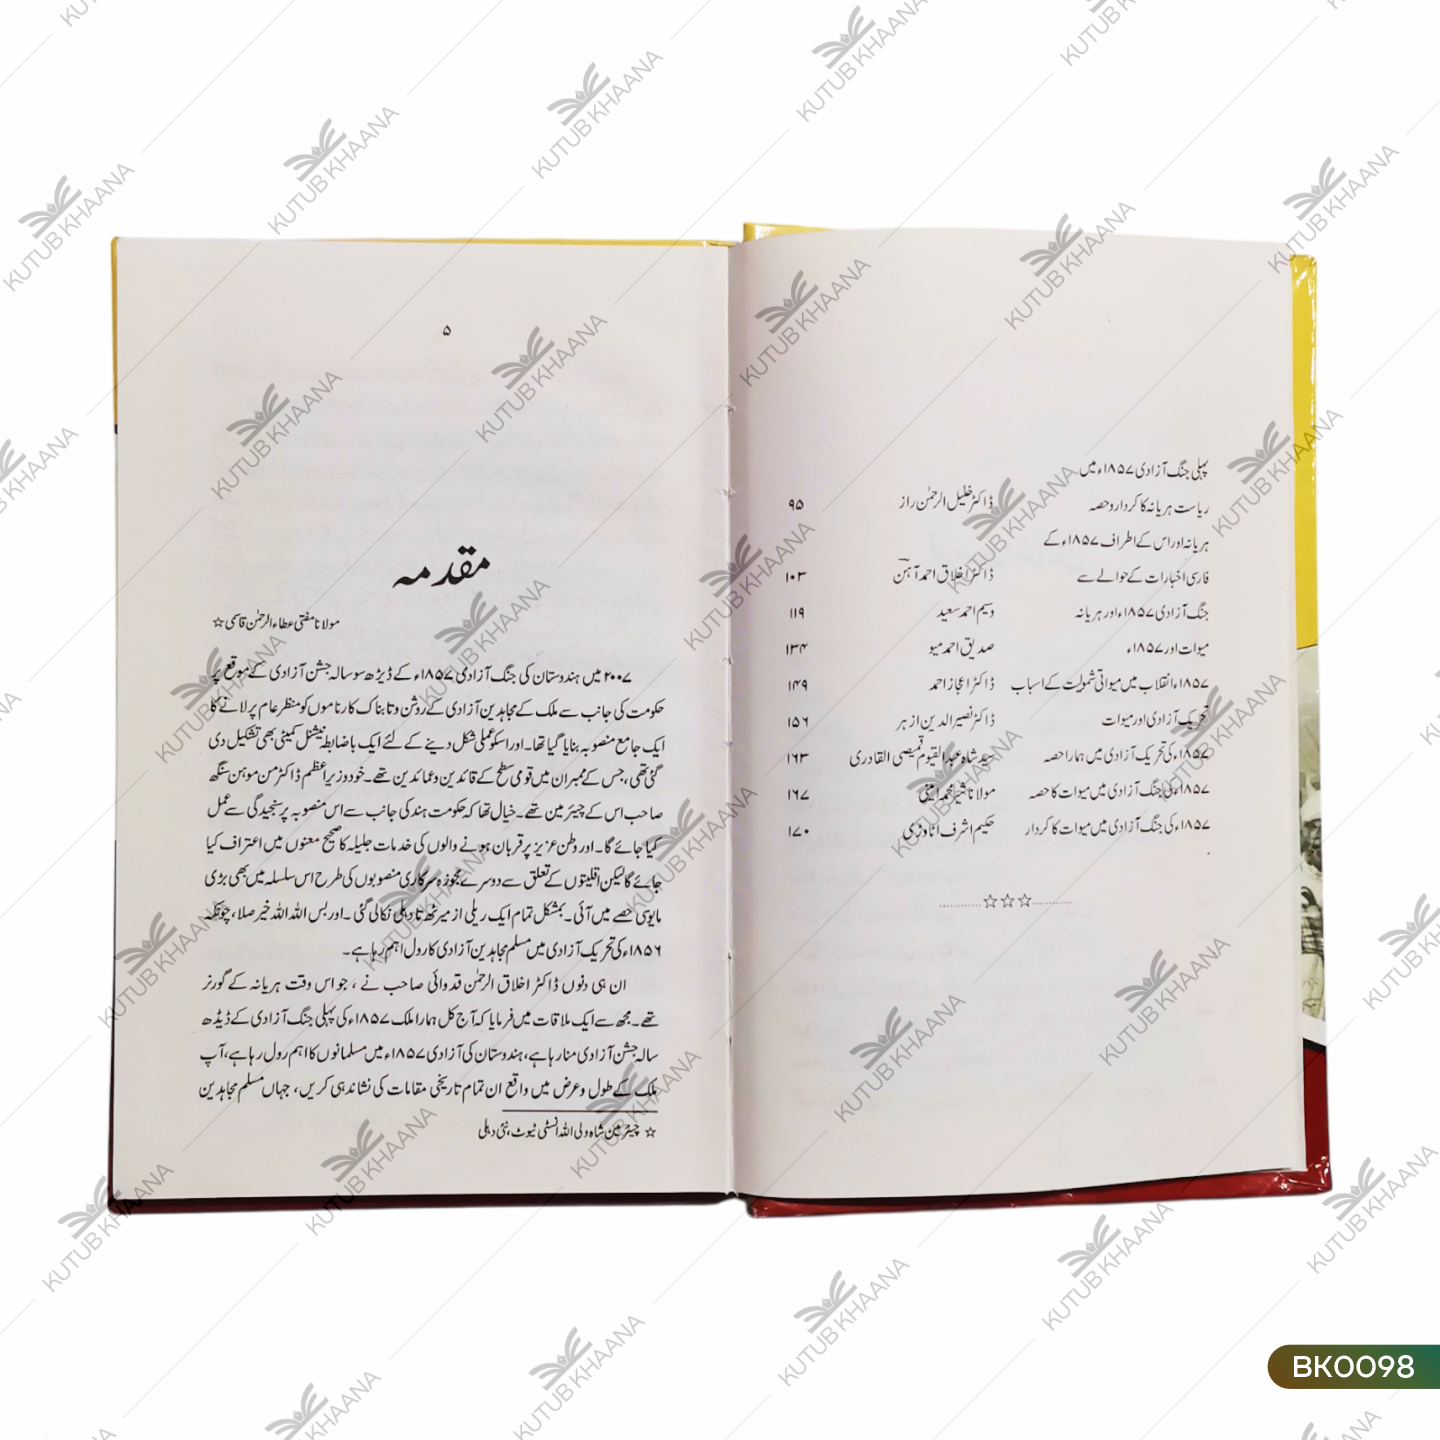 پہلی جنگ آزادی ۱۸۵۷ء میں
ریاست ہریانہ کا کردار وحصہ ڈاکٹر خلیل الرحمٰن راز ۹۵
ہریانہ اور اس کے اطراف ۱۸۵۷ء کے
فارسی اخبارات کے حوالے سے ڈاکٹر اخلاق احمد آہن ۱۰۳
جنگ آزادی ۱۸۵۷ء اور ہریانہ وسیم احمد سعید ۱۱۹
میوات اور ۱۸۵۷ء صدیق احمد میو ۱۳۴
۱۸۵۷ء انقلاب میں میواتی شمولیت کے اسباب ڈاکٹر اعجاز احمد ۱۴۹
تحریک آزادی اور میوات ڈاکٹر نصیر الدین ازہر ۱۵۶
۱۸۵۷ء کی تحریک آزادی میں ہمارا حصہ سید شاہ عبد القیوم قمیصی القادری ۱۶۳
۱۸۵۷ء کی جنگ آزادی میں میوات کا حصہ مولانا شیر محمد امینی ۱۶۷
۱۸۵۷ء کی جنگ آزادی میں میوات کا کردار حکیم اشرف اٹاوڑی ۱۷۰
☆☆☆
۵
مقدمہ
مولانا مفتی عطاء الرحمٰن قاسمی ☆
۲۰۰۷ میں ہندوستان کی جنگ آزادمی ۱۸۵۷ء کے ڈیڑھ سو سالہ جشن آزادی کے موقع پر
حکومت کی جانب سے ملک کے مجاہدین آزادی کے روشن وتابناک کارناموں کو منظر عام پر لانے کا
ایک جامع منصوبہ بنایا گیا تھا۔ اور اسکو عملی شکل دینے کے لئے ایک باضابطہ نیشنل کمیٹی بھی تشکیل دی
گئی تھی، جس کے ممبران میں قومی سطح کے قائدین وعمائدین تھے۔ خود وزیر اعظم ڈاکٹر من موہن سنگھ
صاحب اس کے چیئرمین تھے۔ خیال تھا کہ حکومت ہند کی جانب سے اس منصوبہ پر سنجیدگی سے عمل
کیا جائے گا۔ اور وطن عزیز پر قربان ہونے والوں کی خدمات جلیلہ کا صحیح معنوں میں اعتراف کیا
جائے گا لیکن اقلیتوں کے تعلق سے دوسرے مجوزہ سرکاری منصوبوں کی طرح اس سلسلہ میں بھی بڑی
مایوسی حصے میں آئی۔ بمشکل تمام ایک ریلی از میرٹھ تا دہلی نکالی گئی۔ اور بس اللہ اللہ خیر صلا، چونکہ
۱۸۵۶ء کی تحریک آزادی میں مسلم مجاہدین آزادی کا رول اہم رہا ہے۔
ان ہی دنوں ڈاکٹر اخلاق الرحمٰن قدوائی صاحب نے ، جو اس وقت ہریانہ کے گورنر
تھے۔ مجھ سے ایک ملاقات میں فرمایا کہ آج کل ہمارا ملک ۱۸۵۷ء کی پہلی جنگ آزادی کے ڈیڈھ
سالہ جشن آزادی منا رہا ہے، ہندوستان کی آزادی ۱۸۵۷ء میں مسلمانوں کا اہم رول رہا ہے، آپ
ملک کے طول وعرض میں واقع ان تمام تاریخی مقامات کی نشاندہی کریں، جہاں مسلم مجاہدین
☆ چیئرمین شاہ ولی اللہ انسٹی ٹیوٹ، نئی دہلی
BK0098
KUTUB KHAANA